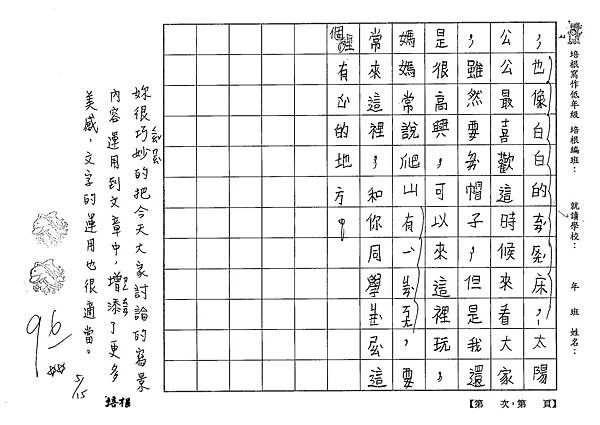 培根寫作低年級 培根編班： 就讀學校： 年 班 姓名：
，也像白白的床，太陽
公公最喜歡這時候來看大家
，雖然要帽子，但是我還
是很高興可以來這裡玩，
媽媽常說爬山有，要
常來這裡，和你同學這
個裡有的地方。
【第 次，第 頁】
妳很巧妙的把今天大家討論的寫景
內容運用到文章中，增添了更多
美感，文字的運用也很適當。
96
5/15
培根